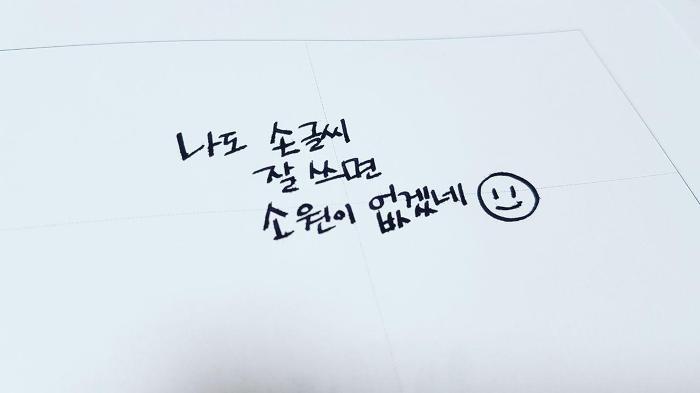 나도 손글씨
잘 쓰면
소원이 없겠네